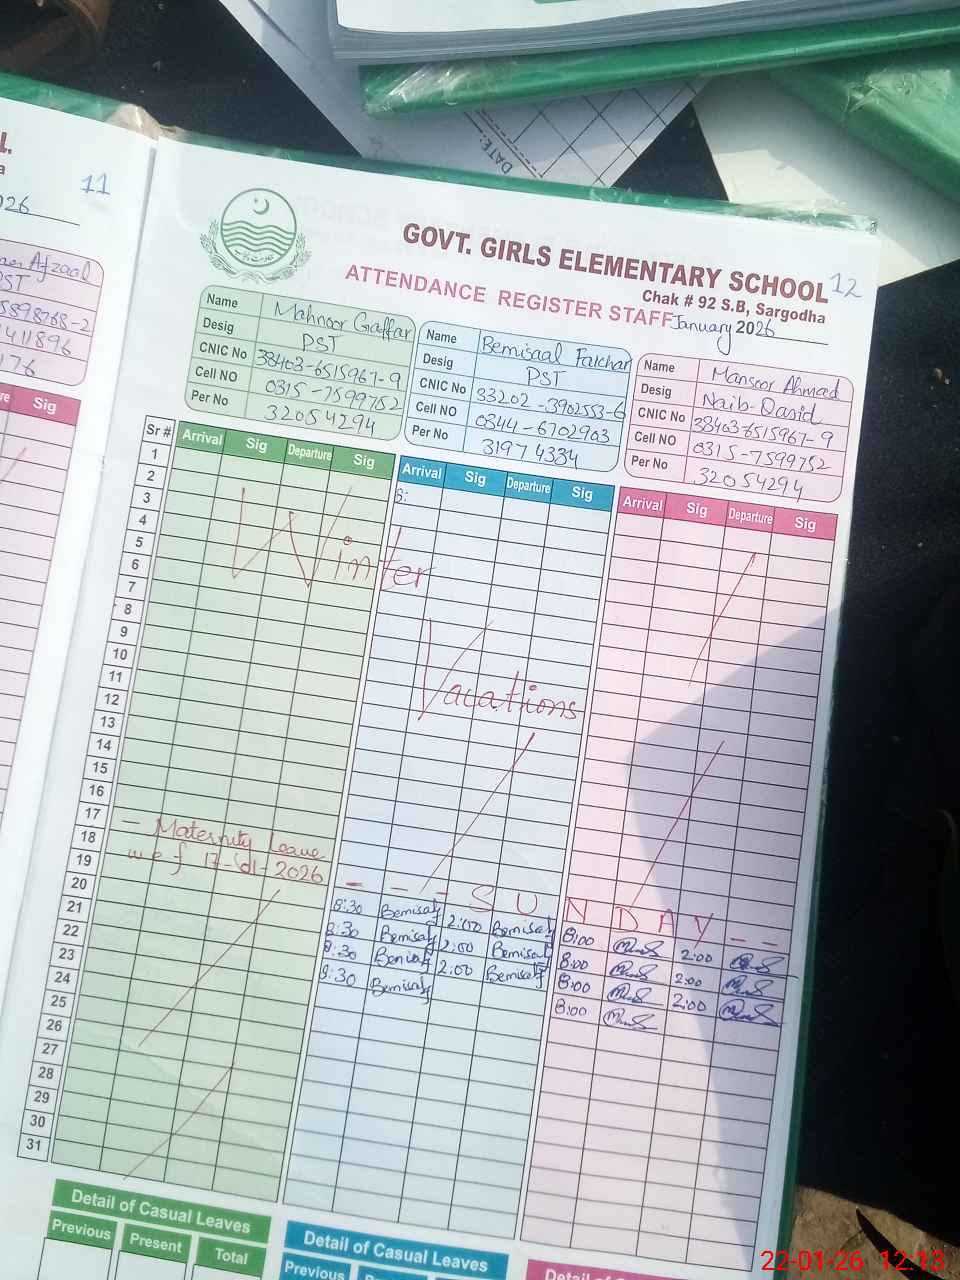 11
026
Afzaal
PST
5898768-2
1411896
176
Sig
DATE:
GOVT. GIRLS ELEMENTARY SCHOOL 12
Chak # 92 S.B, Sargodha
ATTENDANCE REGISTER STAFF January 2026
Name Mahnoor Gaffar
Desig PST
CNIC No 38403-6515967-9
Cell NO 0315-7599752
Per No 32054294
Name Bemisaal Fakhar
Desig PST
CNIC No 33202-3902553-6
Cell NO 0344-6702903
Per No 31974334
Name Mansoor Ahmad
Desig Naib-Qasid
CNIC No 38403-6515967-9
Cell NO 0315-7599752
Per No 32054294
Sr # Arrival Sig Departure Sig Arrival Sig Departure Sig Arrival Sig Departure Sig
1
2 8:
3
4
5
6 Winter
7
8
9
10
11
12 Vacations
13
14
15
16
17
18 - Maternity Leave
19 w.e.f 17-01-2026
20 - - - S U N D A Y - -
21 8:30 Bemisaal 2:00 Bemisaal 8:00 2:00
22 8:30 Bemisaal 2:00 Bemisaal 8:00 2:00
23 8:30 Bemisaal 2:00 Bemisaal 8:00 2:00
24 8:30 Bemisaal 8:00
25
26
27
28
29
30
31
Detail of Casual Leaves
Previous Present Total
Detail of Casual Leaves
Previous
Detail of
22-01-26 12:13